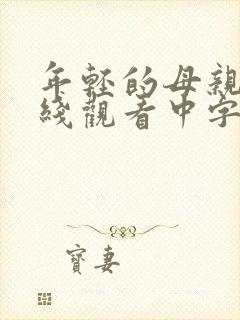 年轻的母亲
线观看中字
寶妻